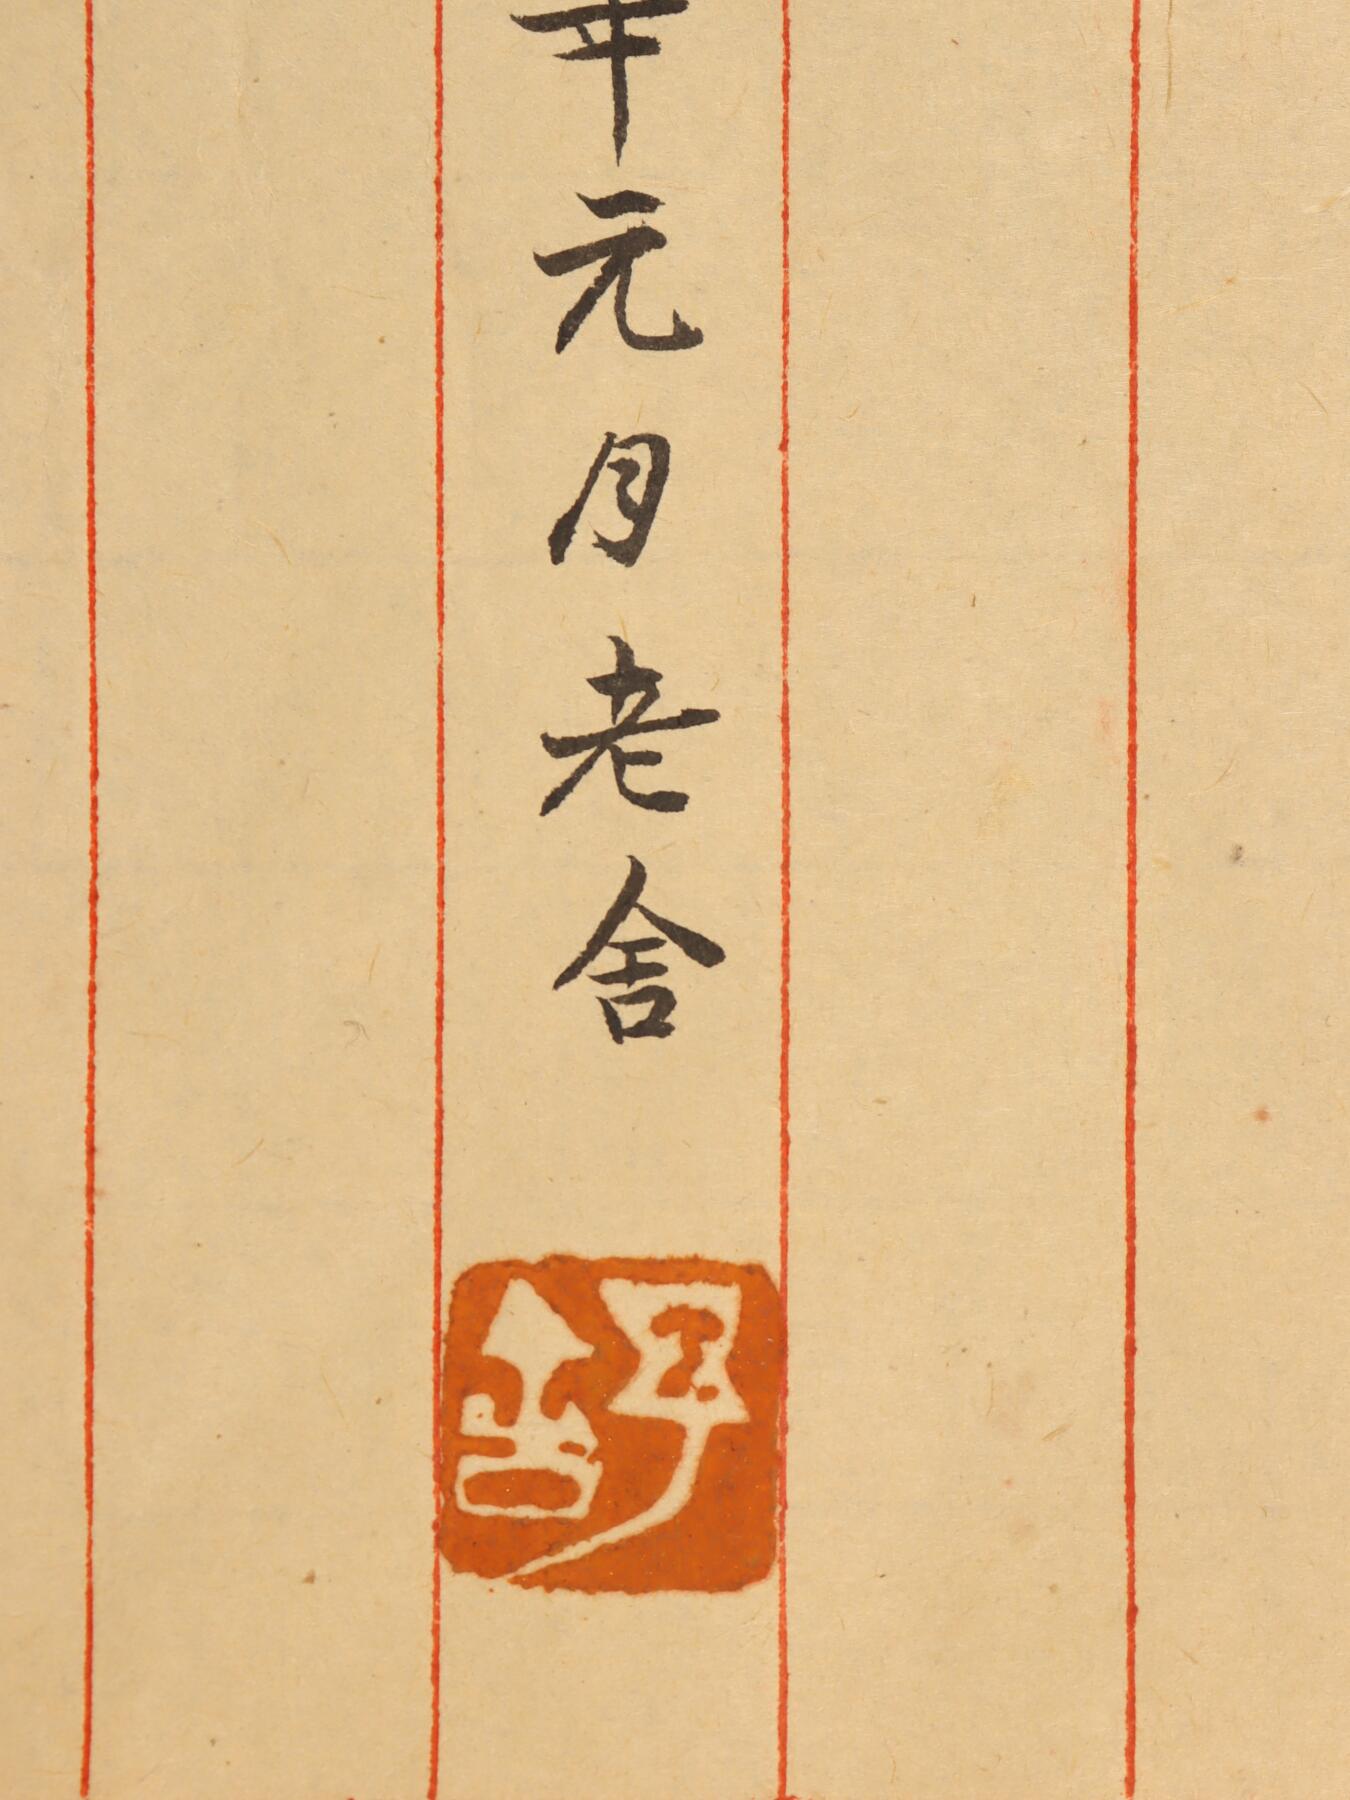 年元月老舍
舒